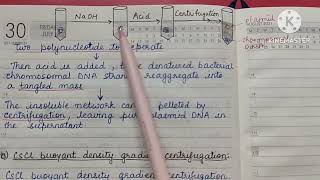 NaOH Acid Centrifugation
30 FRIDAY
JULY
plasmid
chromosomal
KINEMASTER
Two polynucleotide to separate
Then acid is added, the denatured bacterial
chromosomal DNA strands reaggregate into
a tangled mass
The insoluble network can be pelleted by
centrifugation, leaving pure plasmid DNA in
the supernatant.
CsCl buoyant density gradient centrifugation:
CsCl buoyant density gradient centrifugation